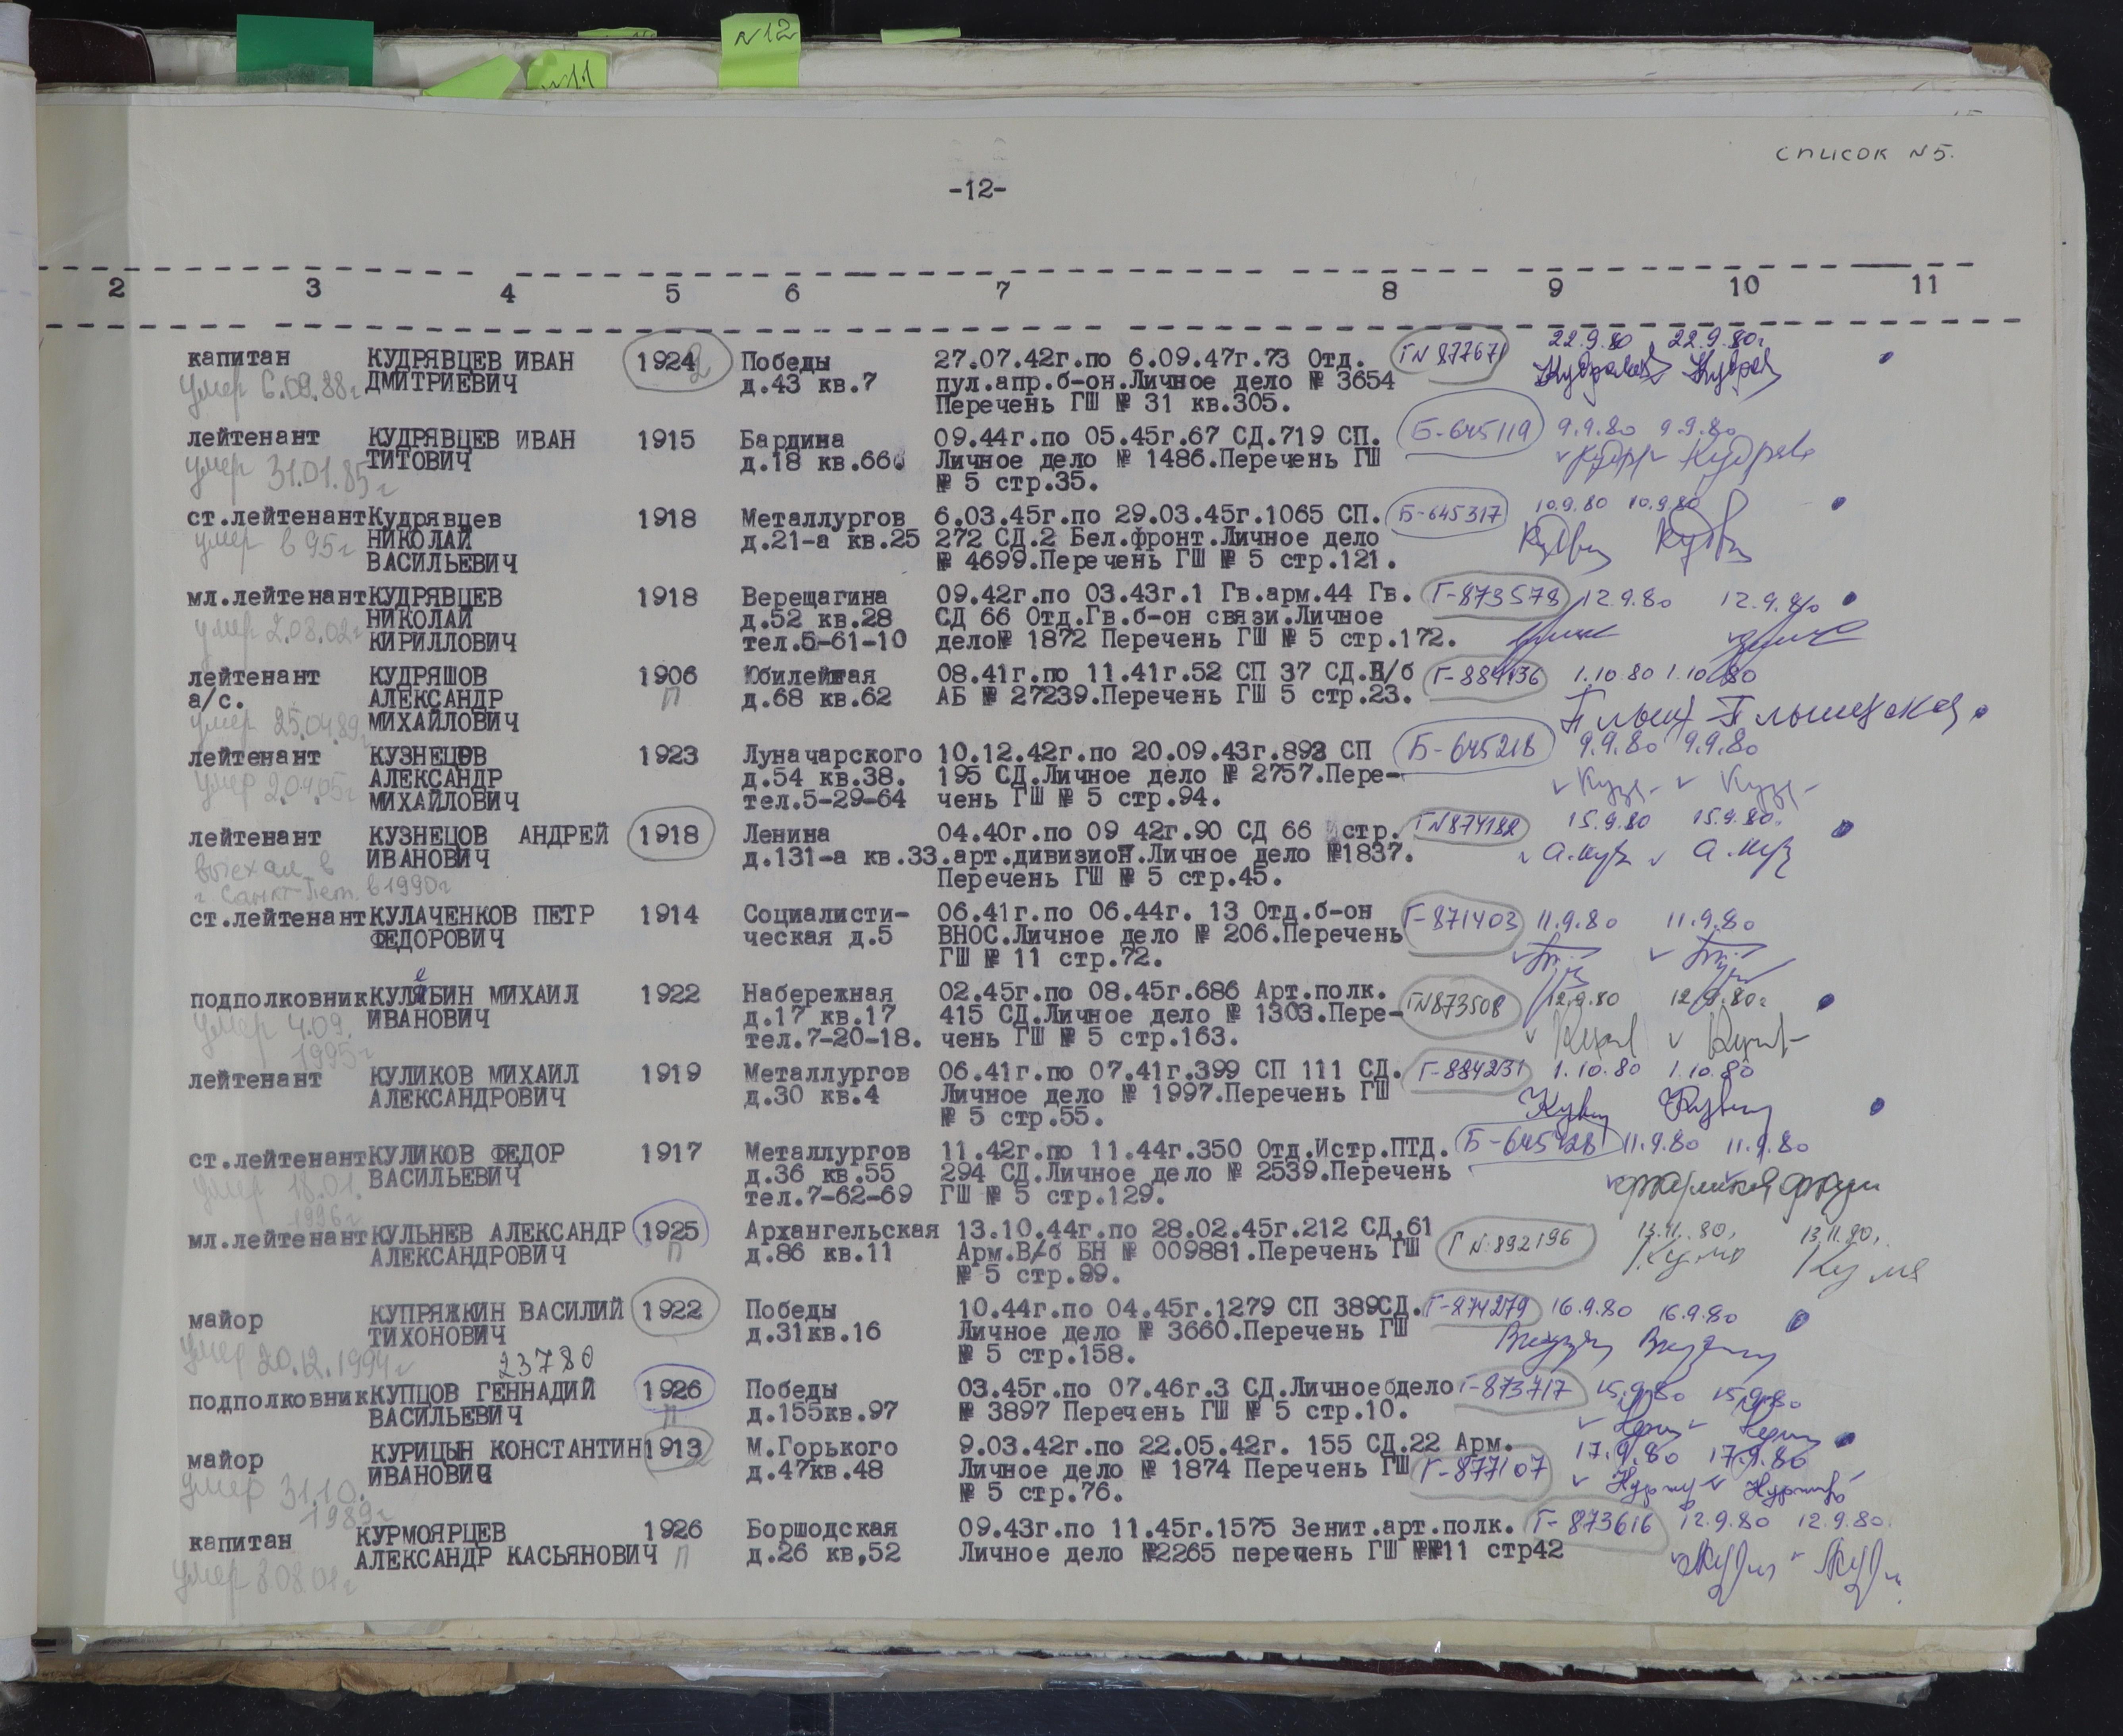 N12
N11
список N5.
-12-
2 3 4 5 6 7 8 9 10 11
капитан КУДРЯВЦЕВ ИВАН 1924 Победы 27.07.42г.по 6.09.47г.73 Отд. ГN 877671 22.9.80 22.9.80г
умер 6.09.88г ДМИТРИЕВИЧ д.43 кв.7 пул.апр.б-он.Личное дело № 3654
Перечень ГШ № 31 кв.305.
лейтенант КУДРЯВЦЕВ ИВАН 1915 Бардина 09.44г.по 05.45г.67 СД.719 СП. Б-645119 9.9.80 9.9.80
умер 31.01.85г ТИТОВИЧ д.18 кв.66 Личное дело № 1486.Перечень ГШ
№ 5 стр.35.
ст.лейтенант Кудрявцев 1918 Металлургов 6.03.45г.по 29.03.45г.1065 СП. Б-645317 10.9.80 10.9.80
умер в 95г НИКОЛАЙ д.21-а кв.25 272 СД.2 Бел.фронт.Личное дело
ВАСИЛЬЕВИЧ № 4699.Перечень ГШ № 5 стр.121.
мл.лейтенант КУДРЯВЦЕВ 1918 Верещагина 09.42г.по 03.43г.1 Гв.арм.44 Гв. Г-873578 12.9.80 12.9.80
умер 2.08.02г НИКОЛАЙ д.52 кв.28 СД 66 Отд.Гв.б-он связи.Личное
КИРИЛЛОВИЧ тел.5-61-10 дело№ 1872 Перечень ГШ № 5 стр.172.
лейтенант КУДРЯШОВ 1906 Юбилейная 08.41г.по 11.41г.52 СП 37 СД.В/б Г-884136 1.10.80 1.10.80
а/с. АЛЕКСАНДР П д.68 кв.62 АБ № 27239.Перечень ГШ 5 стр.23.
умер 25.04.89г МИХАЙЛОВИЧ
лейтенант КУЗНЕЦОВ 1923 Луначарского 10.12.42г.по 20.09.43г.893 СП Б-645218 9.9.80 9.9.80
умер 2.04.05г АЛЕКСАНДР д.54 кв.38. 195 СД.Личное дело № 2757.Пере-
МИХАЙЛОВИЧ тел.5-29-64 чень ГШ № 5 стр.94.
лейтенант КУЗНЕЦОВ АНДРЕЙ 1918 Ленина 04.40г.по 09 42г.90 СД 66 стр. ГN874182 15.9.80 15.9.80.
выехал в ИВАНОВИЧ д.131-а кв.33.арт.дивизион.Личное дело №1837. А.Куз А.Куз
г. Санкт-Пет. в 1990г Перечень ГШ № 5 стр.45.
ст.лейтенант КУЛАЧЕНКОВ ПЕТР 1914 Социалисти- 06.41г.по 06.44г. 13 Отд.б-он Г-871403 11.9.80 11.9.80
ФЕДОРОВИЧ ческая д.5 ВНОС.Личное дело № 206.Перечень
ГШ № 11 стр.72.
подполковник КУЛЯБИН МИХАИЛ 1922 Набережная 02.45г.по 08.45г.686 Арт.полк. ГN873508 12.9.80 12.9.80г
умер 4.09. ИВАНОВИЧ д.17 кв.17 415 СД.Личное дело № 1303.Пере-
1995г тел.7-20-18. чень ГШ № 5 стр.163.
лейтенант КУЛИКОВ МИХАИЛ 1919 Металлургов 06.41г.по 07.41г.399 СП 111 СД. Г-884231 1.10.80 1.10.80
АЛЕКСАНДРОВИЧ д.30 кв.4 Личное дело № 1997.Перечень ГШ
№ 5 стр.55.
ст.лейтенант КУЛИКОВ ФЕДОР 1917 Металлургов 11.42г.по 11.44г.350 Отд.Истр.ПТД. Б-645428 11.9.80 11.9.80
умер 18.01. ВАСИЛЬЕВИЧ д.36 кв.55 294 СД.Личное дело № 2539.Перечень
1996г тел.7-62-69 ГШ № 5 стр.129.
мл.лейтенант КУЛЬНЕВ АЛЕКСАНДР 1925 Архангельская 13.10.44г.по 28.02.45г.212 СД.61 ГN.892196 13.11.80, 13.11.80,
АЛЕКСАНДРОВИЧ П д.86 кв.11 Арм.В/б БН № 009881.Перечень ГШ
№ 5 стр.99.
майор КУПРЯЖКИН ВАСИЛИЙ 1922 Победы 10.44г.по 04.45г.1279 СП 389СД. Г-874279 16.9.80 16.9.80
ТИХОНОВИЧ д.31кв.16 Личное дело № 3660.Перечень ГШ
умер 20.12.1994г 23780 № 5 стр.158.
подполковник КУПЦОВ ГЕННАДИЙ 1926 Победы 03.45г.по 07.46г.3 СД.Личное дело Г-873717 15.9.80 15.9.80
ВАСИЛЬЕВИЧ П д.155кв.97 № 3897 Перечень ГШ № 5 стр.10.
майор КУРИЦЫН КОНСТАНТИН 1913 М.Горького 9.03.42г.по 22.05.42г. 155 СД.22 Арм. 17.9.80 17.9.80
умер 31.10. ИВАНОВИЧ д.47кв.48 Личное дело № 1874 Перечень ГШ Г-877107
1989г № 5 стр.76.
капитан КУРМОЯРЦЕВ 1926 Боршодская 09.43г.по 11.45г.1575 Зенит.арт.полк. Г-873616 12.9.80 12.9.80.
умер 3.08.01г АЛЕКСАНДР КАСЬЯНОВИЧ П д.26 кв,52 Личное дело №2265 перечень ГШ №№11 стр42